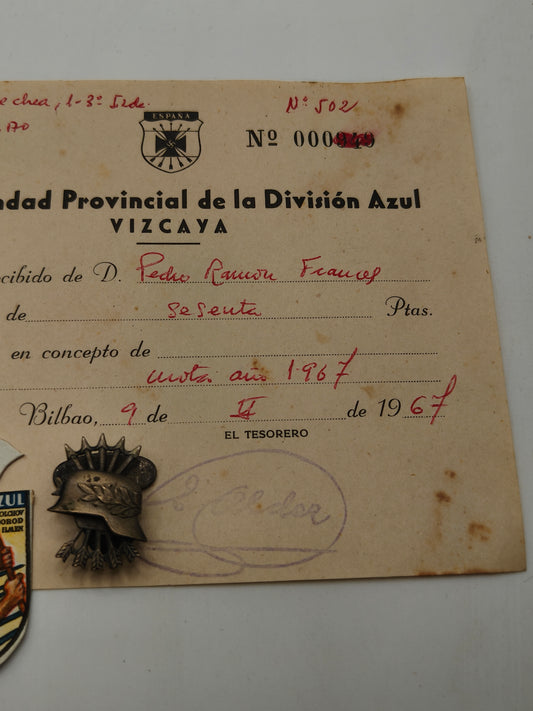 echea, 1-3º Izda.
Nº 502
ESPAÑA
Nº 000
ndad Provincial de la División Azul
VIZCAYA
cibido de D. Pedro Ramón Frances
de sesenta Ptas.
en concepto de
cuota año 1.967
Bilbao, 9 de II de 1967
EL TESORERO
AZUL
OLCHOV
OROD
ILMEN